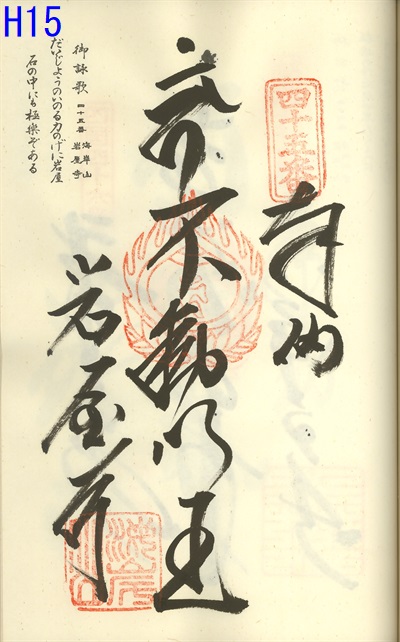 H15
四十五番
奉納
不動明王
岩屋寺
御詠歌 四十五番 海岸山 岩屋寺
だいじようのいのる力のげに岩屋
石の中にも極楽ぞある